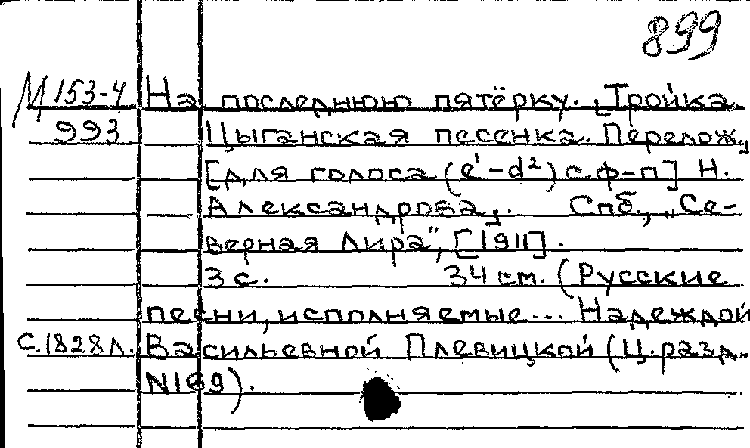 899
М 153-4 На последнюю пятёрку. „Тройка.
993 Цыганская песенка. Перелож.„
[для голоса (e¹-d²) с ф-п] Н.
Александрова„. Спб., „Се-
верная Лира", [1911].
3 с. 34 см. (Русские
песни, исполняемые... Надеждой
С.1828л. Васильевной Плевицкой (Ц.разд.
N169).